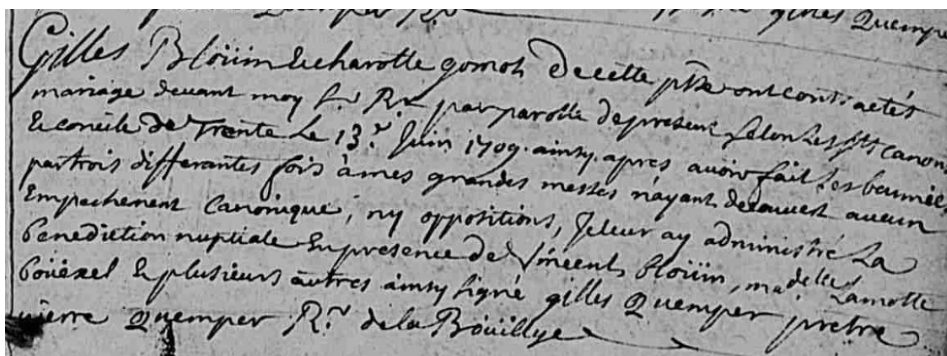 Quemper
gilles Quempe
Gilles Bloüin & charotte gomot de cette psse ont contractés
mariage devant moy Sr. Rr. par parolle de present selon les Sts canon
& concile de Trente Le 13e. Juin 1709. ainsy. apres auoir fait les bannies
par trois differantes fois à mes grandes messes n'ayant decouuert aucun
Empachement Canonique, ny oppositions, Je leur ay administré La
benediction nuptiale En presence de Vincent bloüin, madelle Lamotte
boüexel & plusieurs autres ainsy signé gilles Quemper pretre
pierre Quemper Rr. de la Boüillye